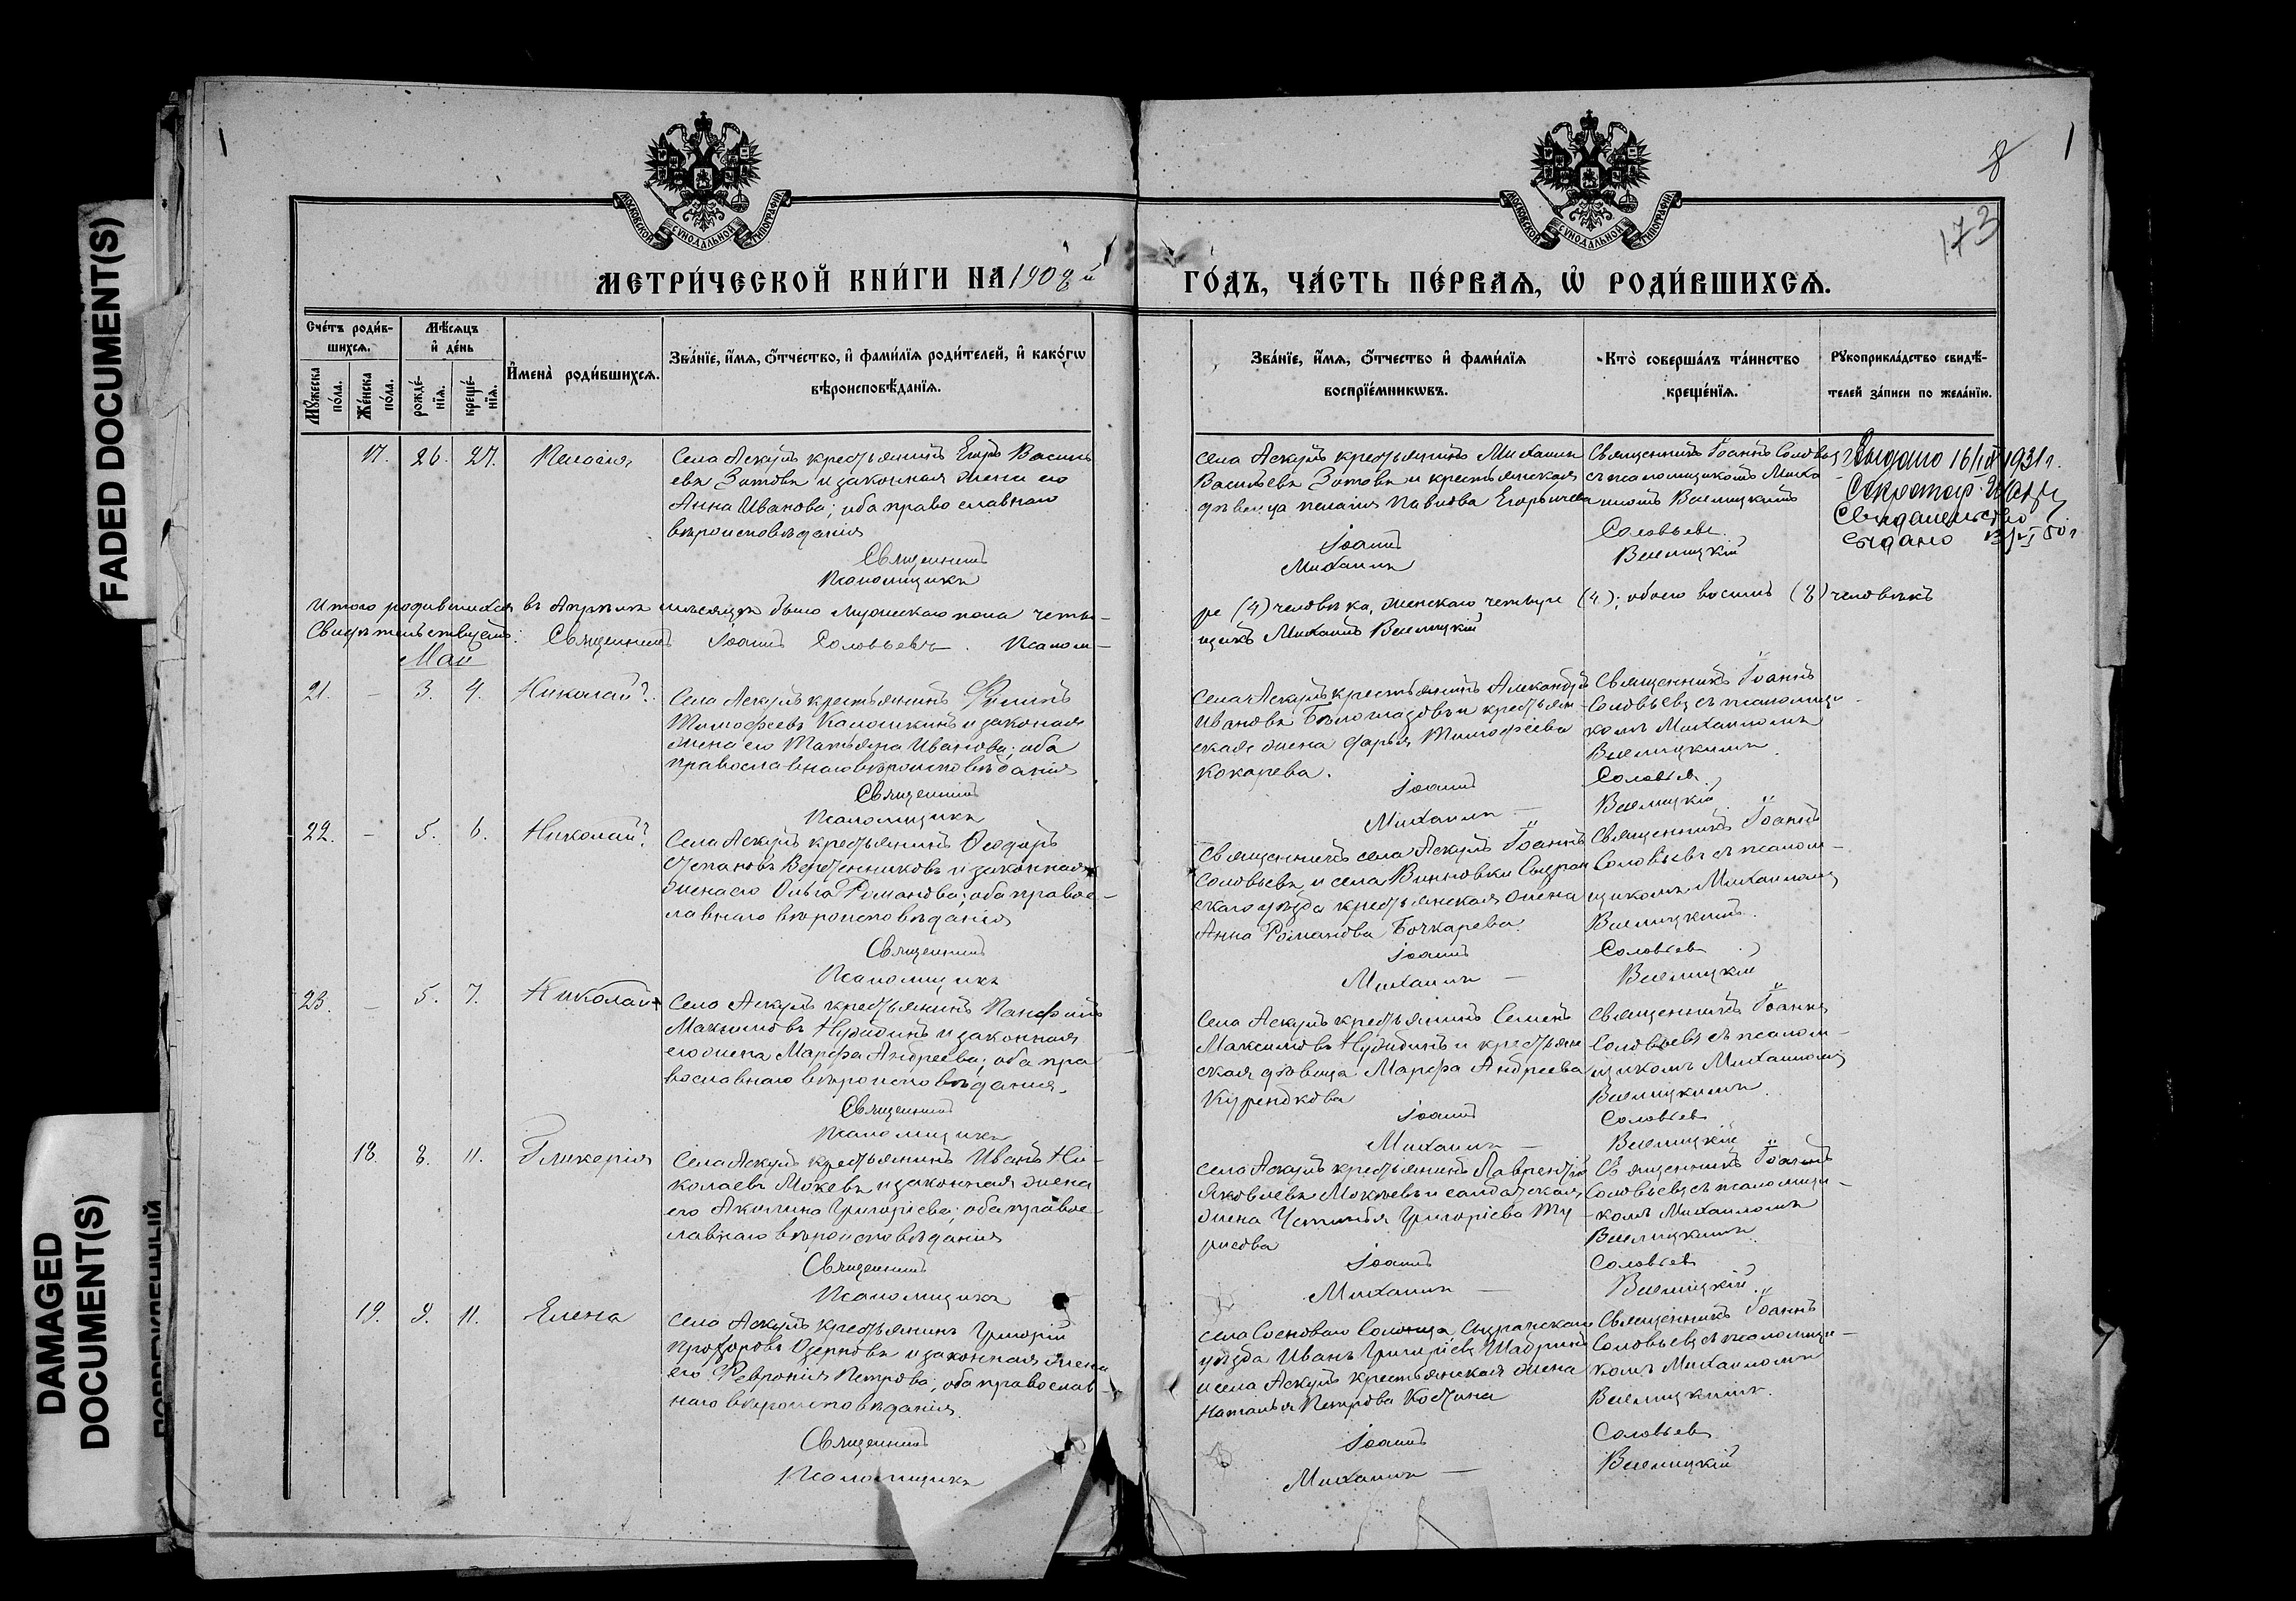 FADED DOCUMENT(S)
DAMAGED
DOCUMENT(S)
МОСКОВСКОЙ СѴНОДАЛЬНОЙ ТИПОГРАФІИ
МОСКОВСКОЙ СѴНОДАЛЬНОЙ ТИПОГРАФІИ
8
173
МЕТРИ́ЧЕСКОЙ КНИ́ГИ НА 1908 й
ГО́ДЪ, ЧА́СТЬ ПЕ́РВАѦ, Ѡ҆ РОДИ́ВШИХСѦ.
Сче́тъ роди́в-
шихсѧ.
Мѹ́жеска по́ла.
Же́нска по́ла.
Мѣ́сѧцъ
и҆ де́нь
рожде́-
нїѧ.
креще́-
нїѧ.
И҆мена̀ роди́вшихсѧ.
Зва́нїе, и҆́мѧ, ѻ҆́тчество, и҆ фами́лїѧ роди́телей, и҆ како́гѡ
вѣроисповѣ́данїѧ.
Зва́нїе, и҆́мѧ, ѻ҆́тчество и҆ фами́лїѧ
воспрїе́мникѡвъ.
Кто̀ соверша́лъ та́инство
креще́нїѧ.
Рѹкоприкла́дство свидѣ́-
телей за́писи по жела́нїю.
17. 26. 27. Пелагія
Села Аскулъ крестьянинъ Егоръ Василь
евъ Зотовъ и законная жена его
Анна Иванова; оба православнаго
вѣроисповѣданія
Священникъ
Псаломщикъ
села Аскулъ крестьянинъ Михаилъ
Васильевъ Зотовъ и крестьянская
дѣвица Пелагія Павлова Егорычева
Іоаннъ
Михаилъ
Священникъ Іоаннъ Соловьевъ
съ псаломщикомъ Миха
иломъ Виелицкимъ
Соловьевъ
Виелицкій
Выдано 1931 г.
Секретарь
Свидетельство
выдано
Итого родившихся въ Апрѣлѣ мѣсяцѣ было мужескаго пола четы-
ре (4) человѣка, женскаго четыре (4); обоего восемь (8) человѣкъ
Свидѣтельствуемъ: Священникъ Іоаннъ Соловьевъ. Псалом-
щикъ Михаилъ Виелицкій
Май
21. - 3. 4. Николай
Села Аскулъ крестьянинъ Филипъ
Тимофеевъ Калашкинъ и законная
жена его Татьяна Иванова; оба
православнаго вѣроисповѣданія
Священникъ
Псаломщикъ
Села Аскулъ крестьянинъ Александръ
Ивановъ Бѣлоглазовъ и крестьян-
ская жена Дарья Тимофеева
Кокарева.
Іоаннъ
Михаилъ
Священникъ Іоаннъ
Соловьевъ съ псаломщи-
комъ Михаиломъ
Виелицкимъ
Соловьевъ
Виелицкій
22. - 5. 6. Николай
Села Аскулъ крестьянинъ Ѳеодоръ
Степановъ Веретенниковъ и законная
жена его Ольга Романова; оба правос-
лавнаго вѣроисповѣданія
Священникъ
Псаломщикъ
Священникъ села Аскулъ Іоаннъ
Соловьевъ, и села Винновки Сызран
скаго уѣзда крестьянская жена
Анна Романова Бочкарева
Іоаннъ
Михаилъ
Священникъ Іоаннъ
Соловьевъ съ псалом-
щикомъ Михаиломъ
Виелицкимъ.
Соловьевъ
Виелицкій
23. - 5. 7. Николай
Села Аскулъ крестьянинъ Панфилъ
Максимовъ и законная
его жена Марфа Андреева; оба пра
вославнаго вѣроисповѣданія.
Священникъ
Псаломщикъ
Села Аскулъ крестьянинъ Семенъ
Максимовъ и крестьян
ская дѣвица Марфа Андреева
Іоаннъ
Михаилъ
Священникъ Іоаннъ
Соловьевъ съ псалом-
щикомъ Михаиломъ
Виелицкимъ
Соловьевъ
Виелицкій
18. 8. 11. Гликерія
Села Аскулъ крестьянинъ Иванъ Ни-
колаевъ Мокевъ и законная жена
его Акилина Григоріева; оба правос-
лавнаго вѣроисповѣданія
Священникъ
Псаломщикъ
Села Аскулъ крестьянинъ Лаврентій
Яковлевъ Мокеевъ и солдатская
жена Устинья Григоріева Ту-
рисова
Іоаннъ
Михаилъ
Священникъ Іоаннъ
Соловьевъ съ псаломщи-
комъ Михаиломъ
Виелицкимъ
Соловьевъ
Виелицкій
19. 9. 11. Елена
Села Аскулъ крестьянинъ Григорій
Прохоровъ Озерновъ и законная жена
его Февронія Петрова; оба православ-
наго вѣроисповѣданія.
Священникъ
Псаломщикъ
Села Сосноваго Солонца, Сызранскаго
уѣзда Иванъ Григорьевъ
и села Аскулъ крестьянская жена
Наталья Петрова Костина
Іоаннъ
Михаилъ
Священникъ Іоаннъ
Соловьевъ съ псаломщи-
комъ Михаиломъ
Виелицкимъ.
Соловьевъ
Виелицкій